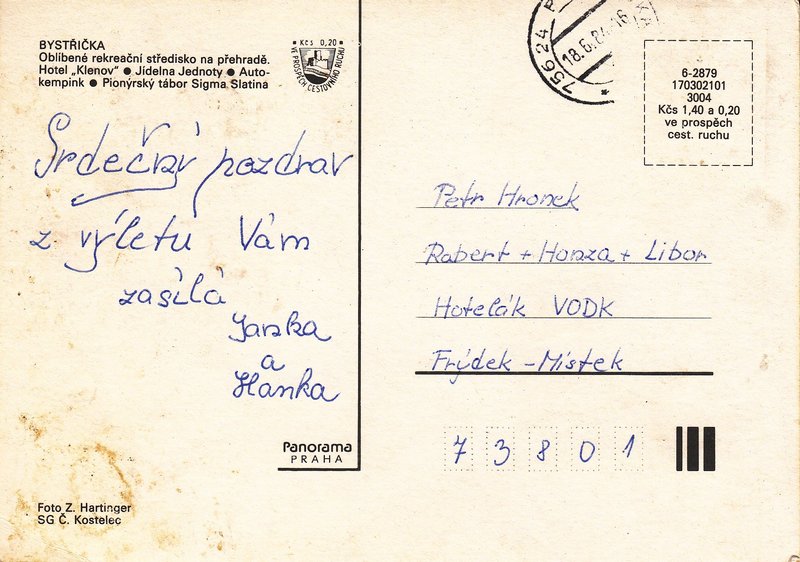 BYSTŘIČKA
Oblíbené rekreační středisko na přehradě.
Hotel „Klenov" ● Jídelna Jednoty ● Auto-
kempink ● Pionýrský tábor Sigma Slatina
Kčs 0,20
VE PROSPĚCH CESTOVNÍHO RUCHU
75624
18.6.84-16
6-2879
170302101
3004
Kčs 1,40 a 0,20
ve prospěch
cest. ruchu
Srdečný pozdrav
z výletu Vám
zasílá
Janka
a
Hanka
Petr Hronek
Robert + Honza + Libor
Hotelák VODK
Frýdek - Místek
73801
Panorama
PRAHA
Foto Z. Hartinger
SG Č. Kostelec